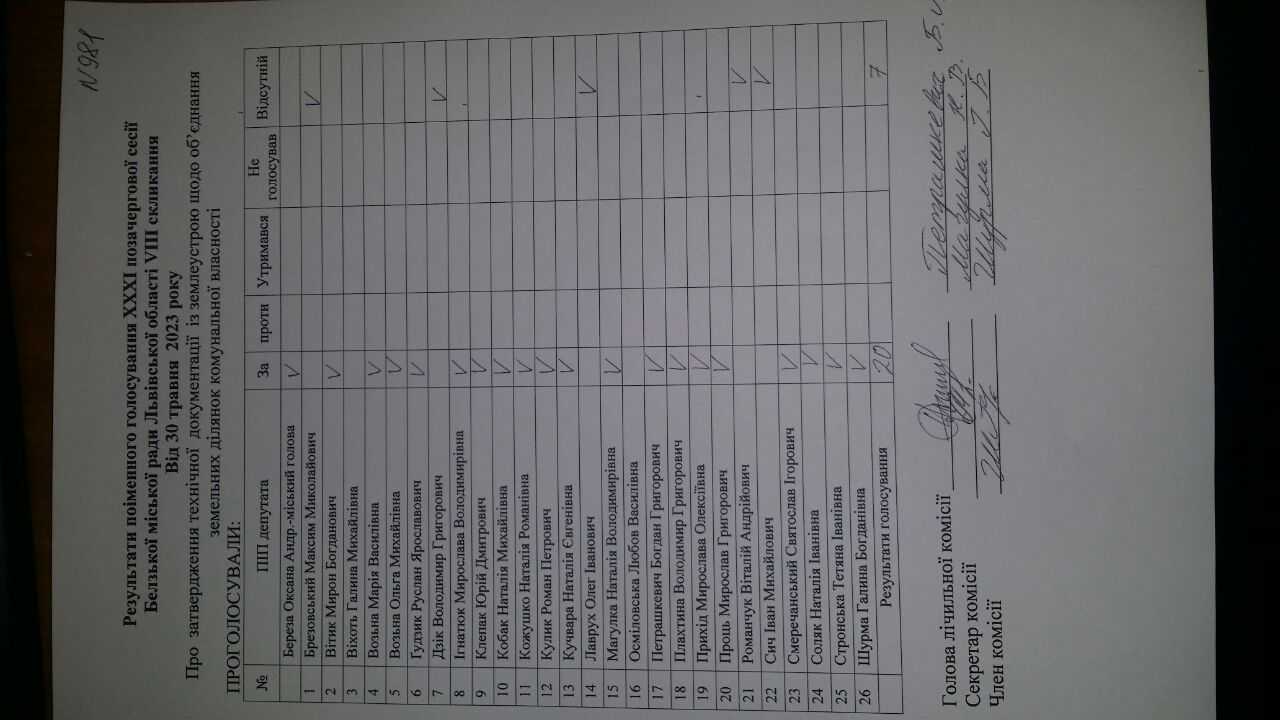 N 981
Результати поіменного голосування XXXI позачергової сесії
Белзької міської ради Львівської області VIII скликання
Від 30 травня 2023 року
Про затвердження технічної документації із землеустрою щодо об’єднання
земельних ділянок комунальної власності
ПРОГОЛОСУВАЛИ:
№ ПІП депутата За проти Утримався Не голосував Відсутній
Береза Оксана Андр.-міський голова V
1 Брезовський Максим Миколайович V
2 Вітик Мирон Богданович V
3 Віхоть Галина Михайлівна
4 Возьна Марія Василівна V
5 Возьна Ольга Михайлівна V
6 Гудзик Руслан Ярославович V
7 Дзік Володимир Григорович V
8 Ігнатюк Мирослава Володимирівна V
9 Клепак Юрій Дмитрович V
10 Кобак Наталія Михайлівна V
11 Кожушко Наталія Романівна V
12 Кулик Роман Петрович V
13 Кучвара Наталія Євгенівна V
14 Лаврух Олег Іванович V
15 Магулка Наталія Володимирівна V
16 Осміловська Любов Василівна
17 Петрашкевич Богдан Григорович V
18 Плахтина Володимир Григорович V
19 Прихід Мирослава Олексіївна V
20 Проць Мирослав Григорович V
21 Романчук Віталій Андрійович V
22 Сич Іван Михайлович V
23 Смеречанський Святослав Ігорович V
24 Соляк Наталія Іванівна V
25 Стронська Тетяна Іванівна V
26 Шурма Галина Богданівна V
Результати голосування 20 7
Голова лічильної комісії Петрашкевич Б.
Секретар комісії Магулка Н.В.
Член комісії Шурма Г.Б